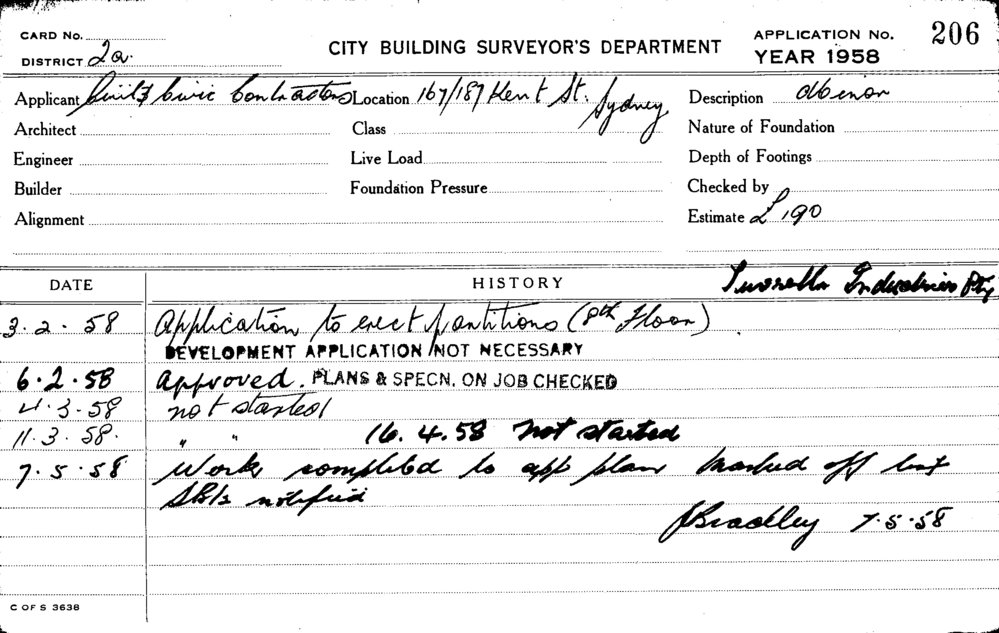 CARD No.
DISTRICT 2a.
CITY BUILDING SURVEYOR'S DEPARTMENT
APPLICATION No. 206
YEAR 1958
Applicant Civil & Civic Contractors Location 167/187 Kent St. Sydney Description
Architect Class Nature of Foundation
Engineer Live Load Depth of Footings
Builder Foundation Pressure Checked by
Alignment Estimate £190
DATE HISTORY Industries Pty
3.2.58 Application to erect partitions (8th Floor)
DEVELOPMENT APPLICATION NOT NECESSARY
6.2.58 Approved. PLANS & SPECN. ON JOB CHECKED
4.3.58 not started
11.3.58. " " 16.4.58 Not started
7.5.58 Work completed to app plan marked off
notified
Bradley 7.5.58
C OF S 3638